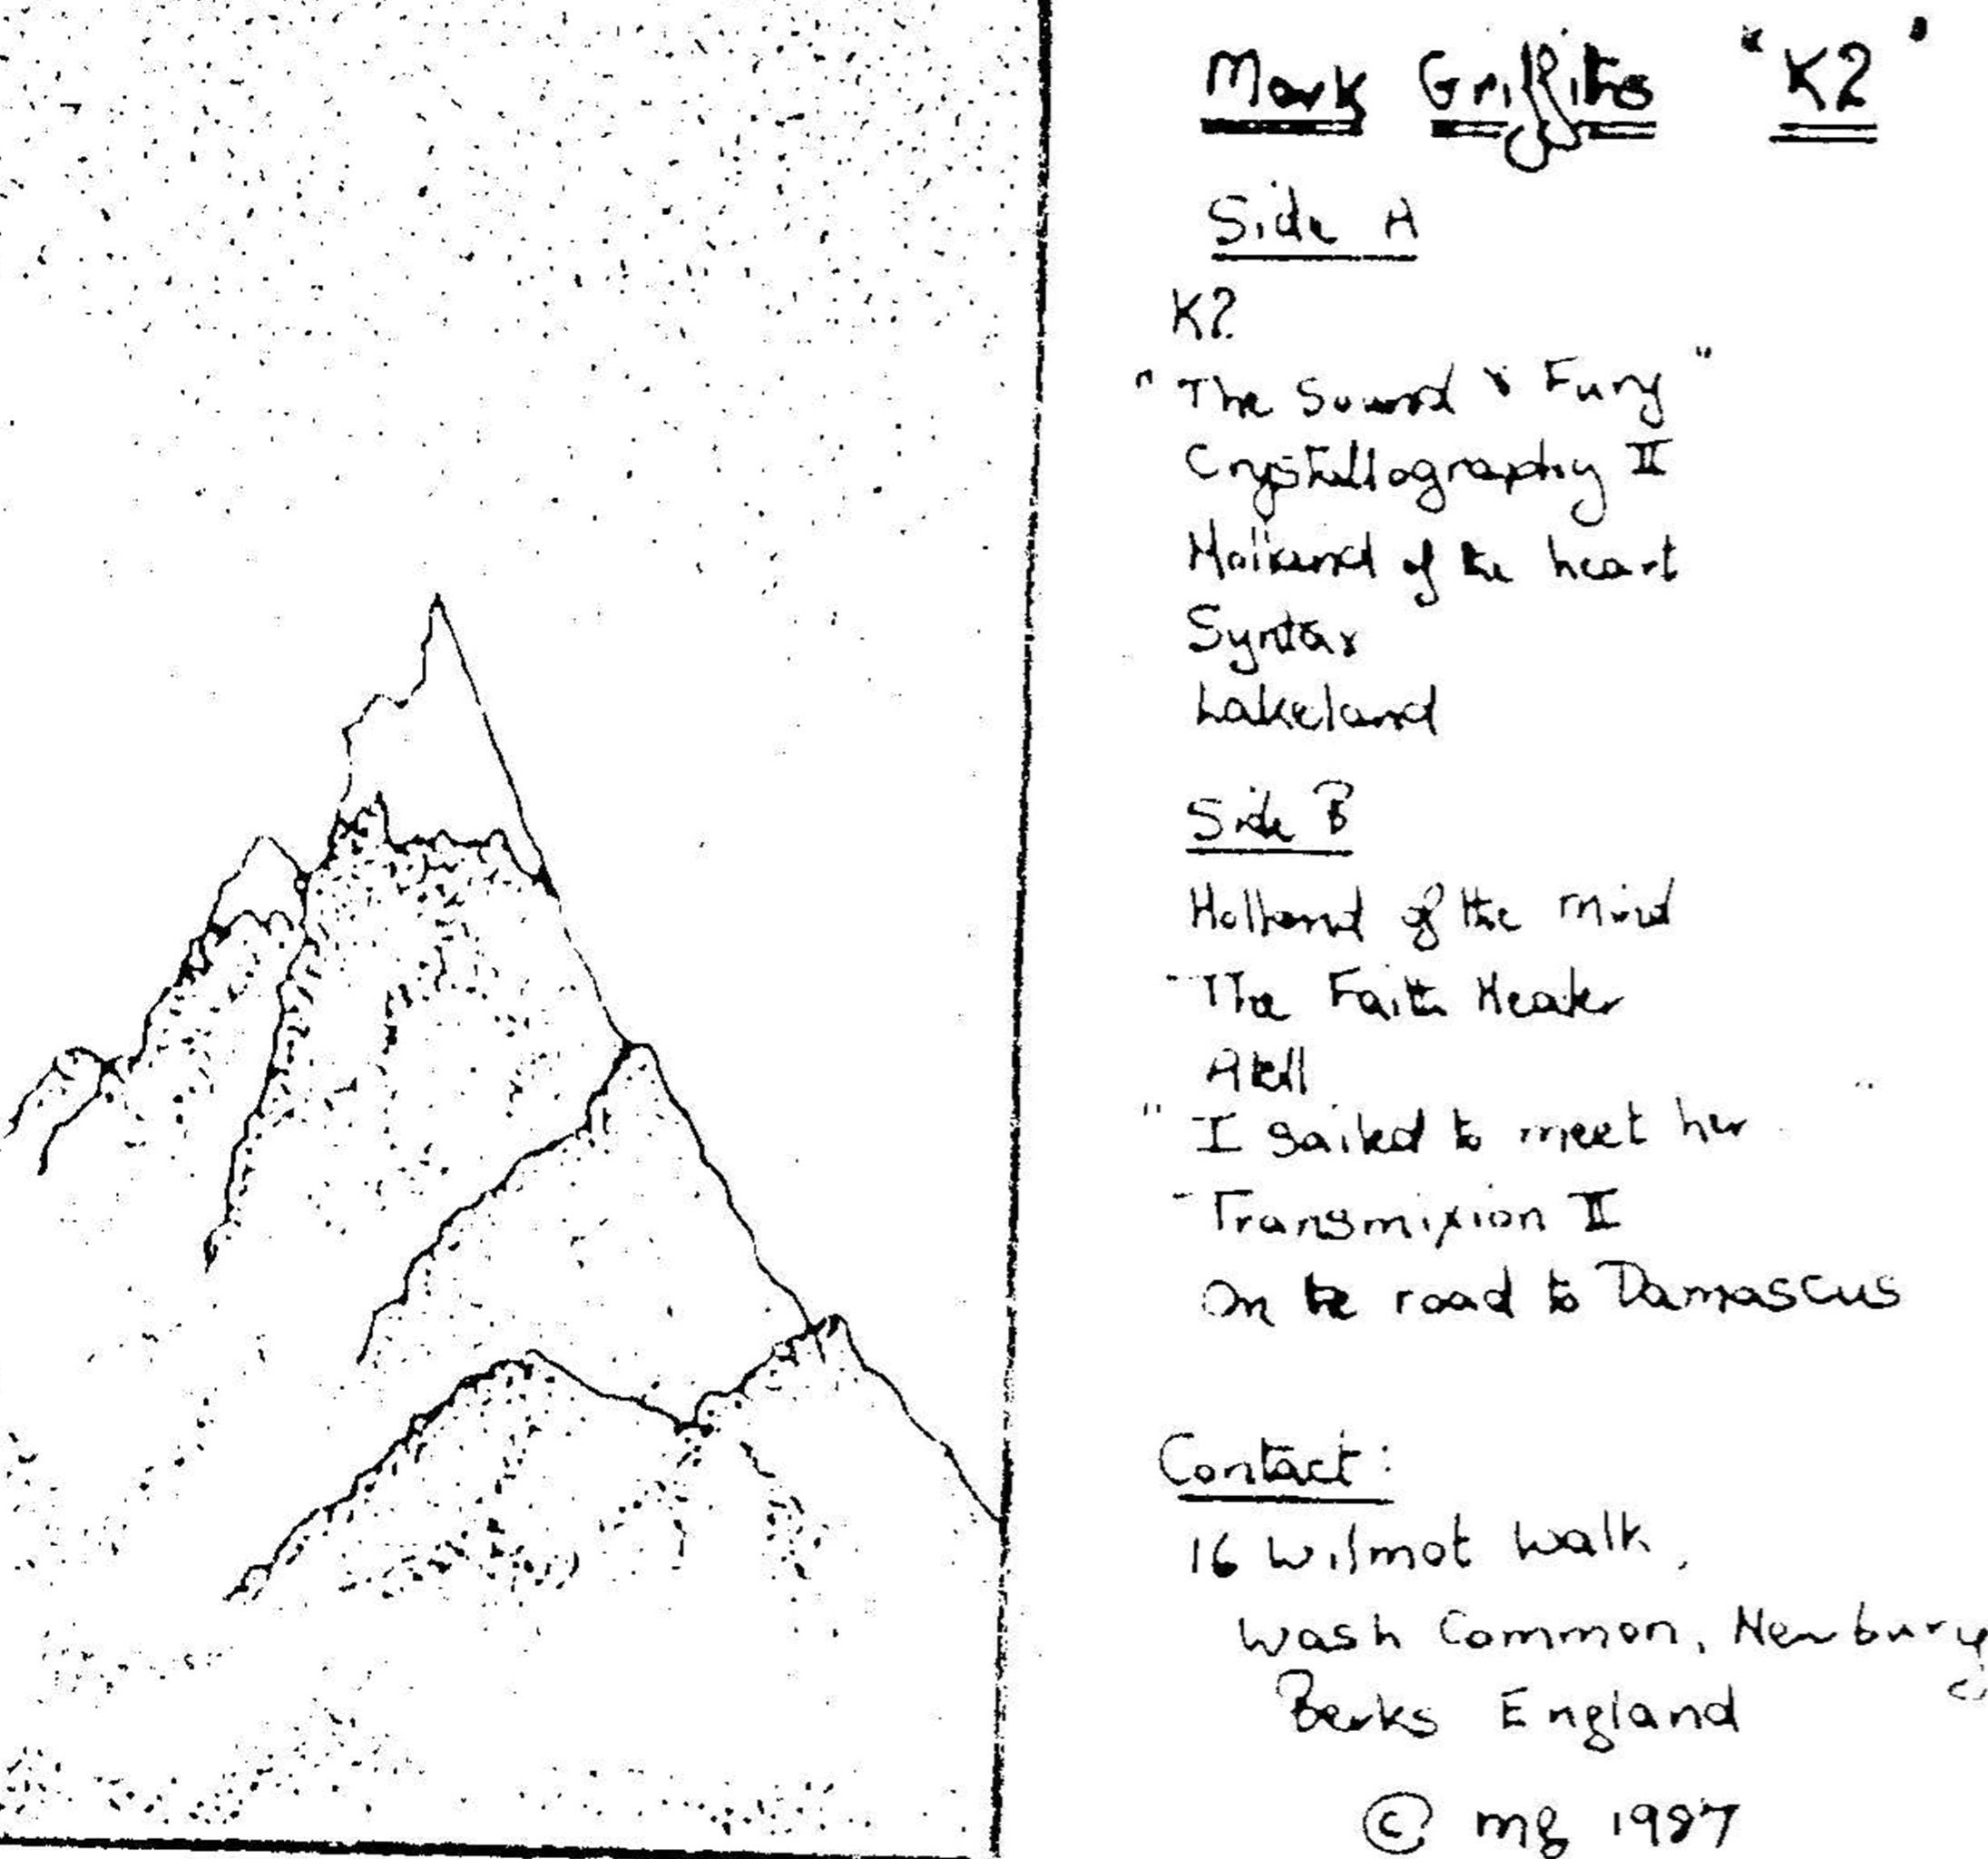 Mark Griffiths "K2"
Side A
K2
"The Sound & Fury"
Crystallography II
Holland of the heart
Syntax
Lakeland
Side B
Holland of the mind
"The Faith Healer
Atell
"I sailed to meet her"
"Transmixion II
On the road to Damascus
Contact:
16 Wilmot Walk,
Wash Common, Newbury
Berks England
© mg 1987